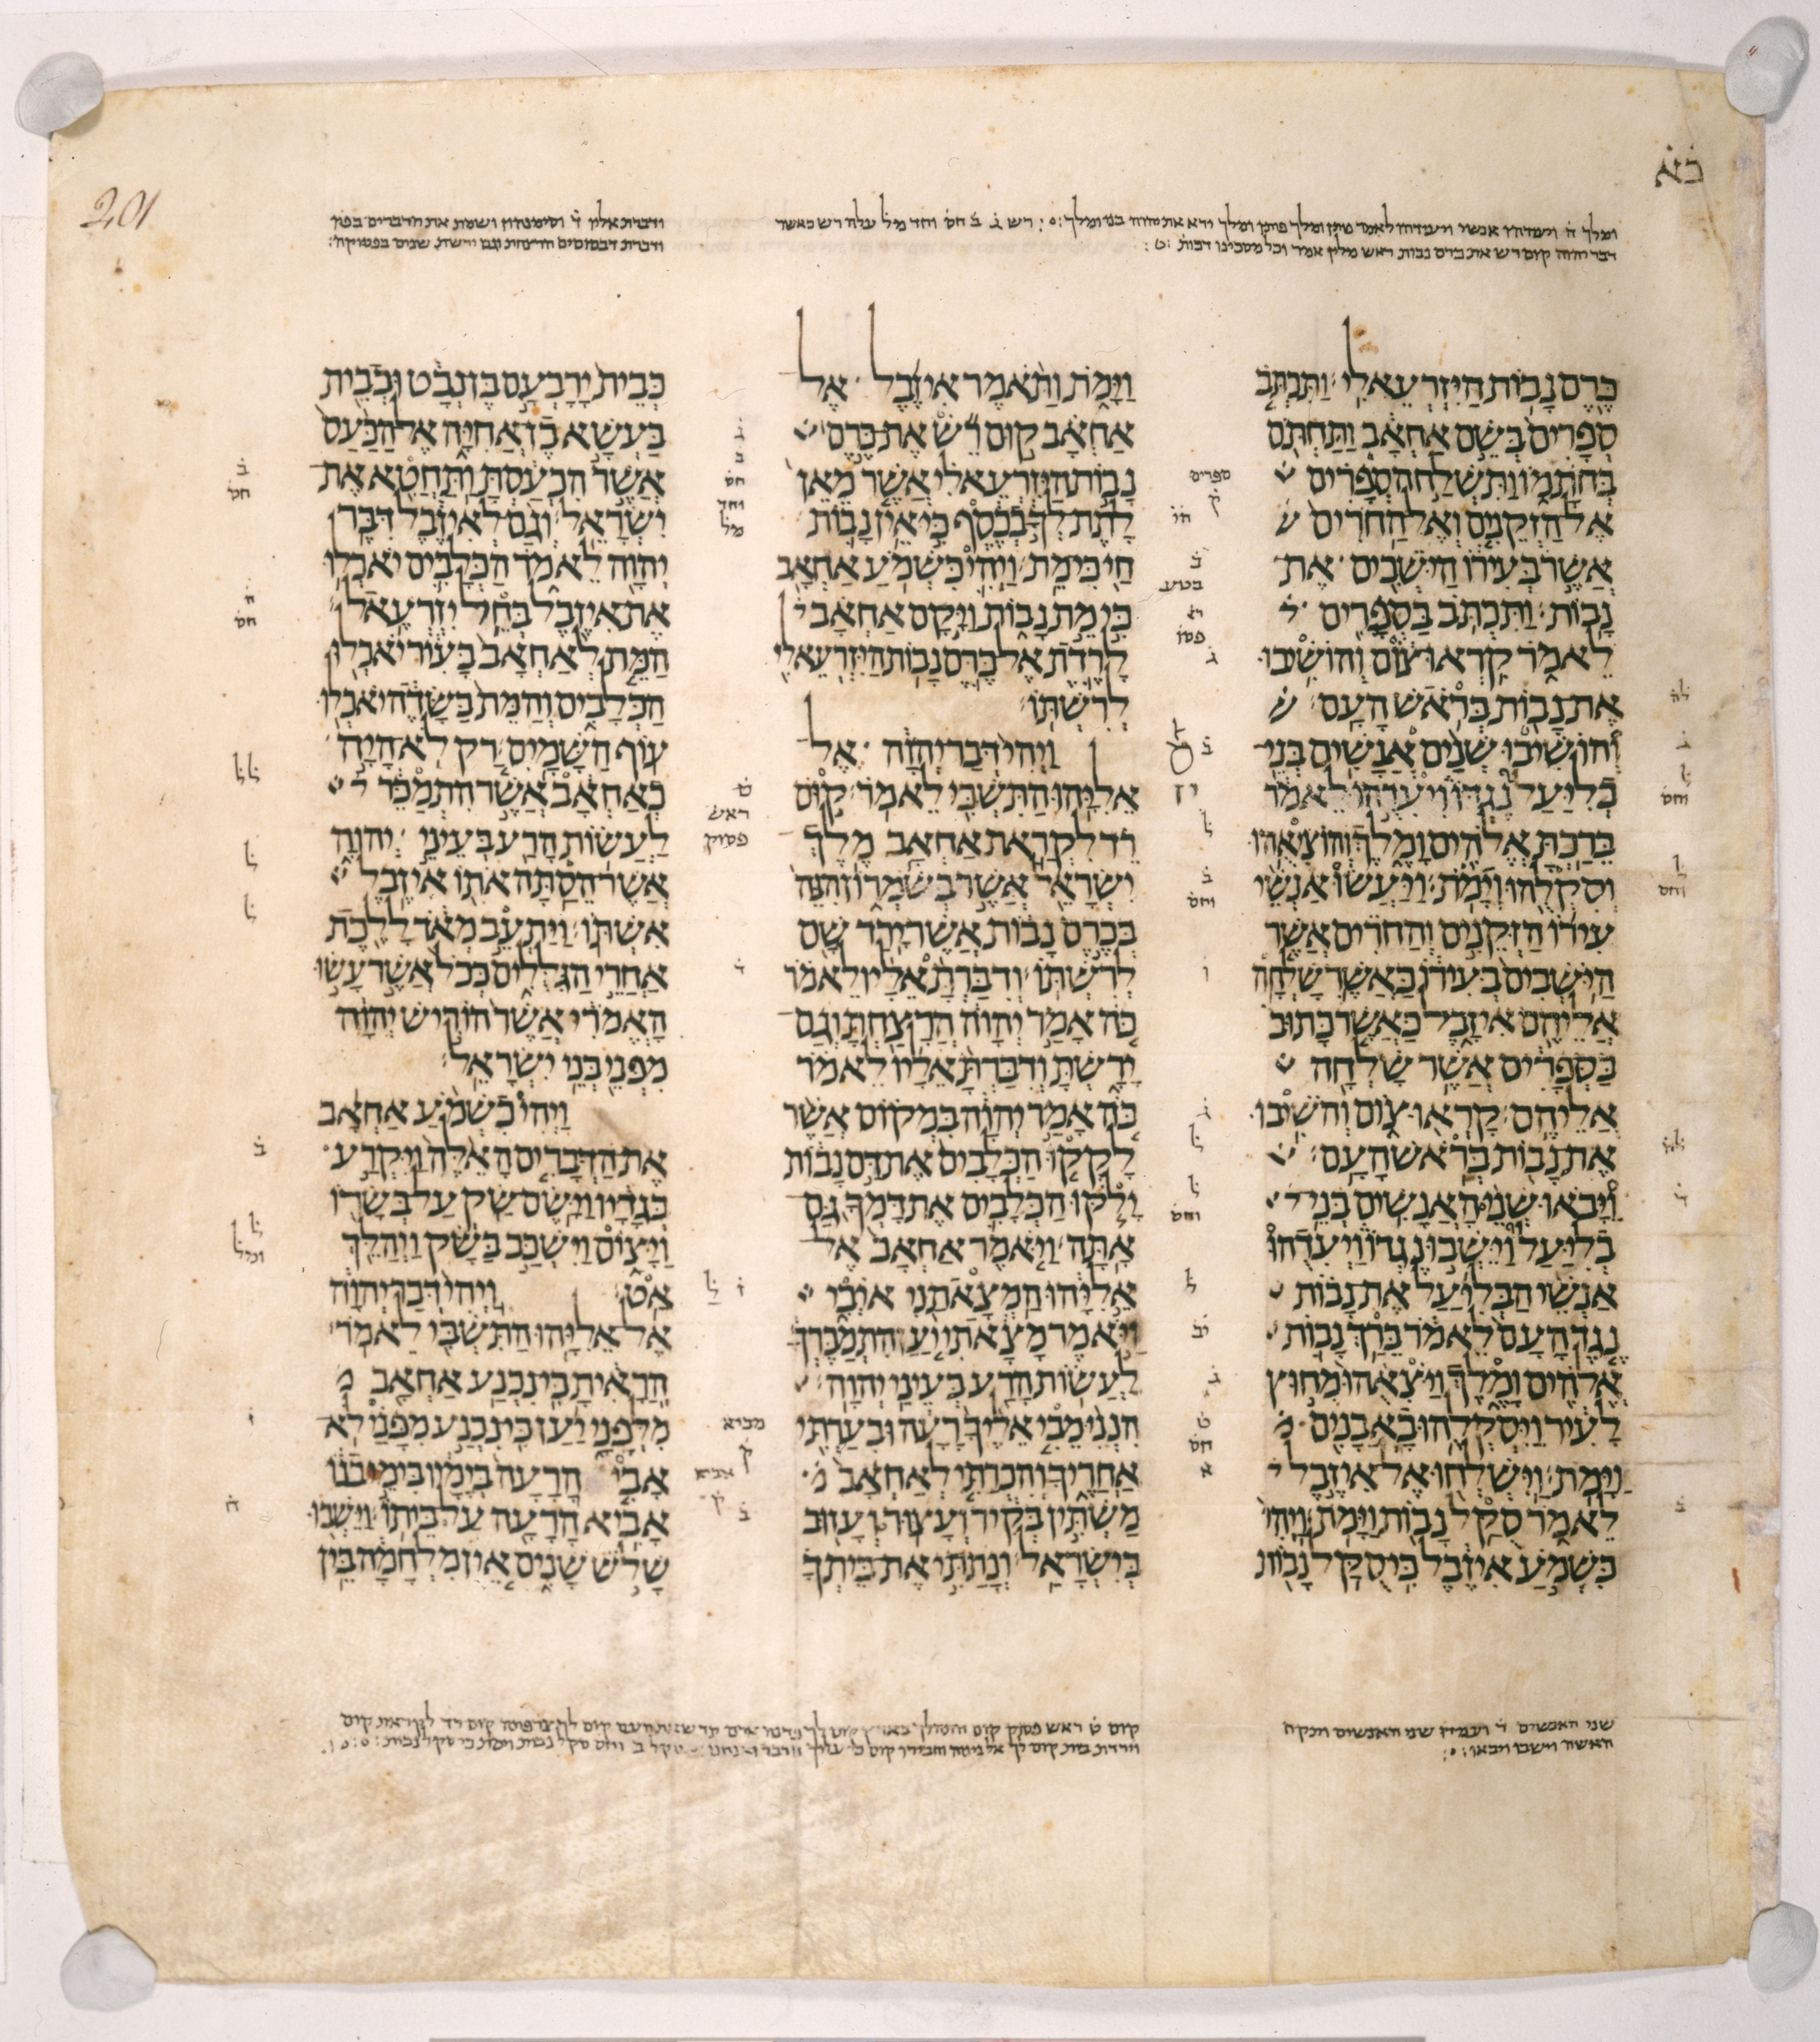 כא
201
ומלך ה ויעדהו אנשי ויעדהו לאמר נותן ומלך פותן ומלך ירא את יהוה בני ומלך רש ג ב חס וחד מל עלה רש כאשר
דבר יהוה קום רש את כרם נבות ראש מלין אמר וכל
ודברת אליו ד וסימנהון ושמת את הדברים בפיו
כֶּרֶם נָבוֹת הַיִּזְרְעֵאלִי׃ וַתִּכְתֹּב
סְפָרִים בְּשֵׁם אַחְאָב וַתַּחְתֹּם
בְּחֹתָמוֹ וַתִּשְׁלַח הסְפָרִים
אֶל הַזְּקֵנִים וְאֶל הַחֹרִים
אֲשֶׁר בְּעִירוֹ הַיֹּשְׁבִים אֶת
נָבוֹת׃ וַתִּכְתֹּב בַּסְּפָרִים
לֵאמֹר קִרְאוּ צוֹם וְהוֹשִׁיבוּ
אֶת נָבוֹת בְּרֹאשׁ הָעָם׃
וְהוֹשִׁיבוּ שְׁנַיִם אֲנָשִׁים בְּנֵי
בְלִיַּעַל נֶגְדּוֹ וִיעִדֻהוּ לֵאמֹר
בֵּרַכְתָּ אֱלֹהִים וָמֶלֶךְ וְהוֹצִיאֻהוּ
וְסִקְלֻהוּ וְיָמֹת׃ וַיַּעֲשׂוּ אַנְשֵׁי
עִירוֹ הַזְּקֵנִים וְהַחֹרִים אֲשֶׁר
הַיֹּשְׁבִים בְּעִירוֹ כַּאֲשֶׁר שָׁלְחָה
אֲלֵיהֶם אִיזָבֶל כַּאֲשֶׁר כָּתוּב
בַּסְּפָרִים אֲשֶׁר שָׁלְחָה
אֲלֵיהֶם׃ קָרְאוּ צוֹם וְהֹשִׁיבוּ
אֶת נָבוֹת בְּרֹאשׁ הָעָם׃
וַיָּבֹאוּ שְׁנֵי הָאֲנָשִׁים בְּנֵי
בְלִיַּעַל וַיֵּשְׁבוּ נֶגְדּוֹ וַיְעִדֻהוּ
אַנְשֵׁי הַבְּלִיַּעַל אֶת נָבוֹת
נֶגֶד הָעָם לֵאמֹר בֵּרַךְ נָבוֹת
אֱלֹהִים וָמֶלֶךְ וַיֹּצִאֻהוּ מִחוּץ
לָעִיר וַיִּסְקְלֻהוּ בָאֲבָנִים
וַיָּמֹת׃ וַיִּשְׁלְחוּ אֶל אִיזֶבֶל
לֵאמֹר סֻקַּל נָבוֹת וַיָּמֹת׃ וַיְהִי
כִּשְׁמֹעַ אִיזֶבֶל כִּי סֻקַּל נָבוֹת
וַיָּמֹת וַתֹּאמֶר אִיזֶבֶל אֶל
אַחְאָב קוּם רֵשׁ אֶת כֶּרֶם
נָבוֹת הַיִּזְרְעֵאלִי אֲשֶׁר מֵאֵן
לָתֶת לְךָ בְכֶסֶף כִּי אֵין נָבוֹת
חַי כִּי מֵת׃ וַיְהִי כִּשְׁמֹעַ אַחְאָב
כִּי מֵת נָבוֹת וַיָּקָם אַחְאָב
לָרֶדֶת אֶל כֶּרֶם נָבוֹת הַיִּזְרְעֵאלִי
לְרִשְׁתּוֹ׃
וַיְהִי דְּבַר יְהוָה אֶל
אֵלִיָּהוּ הַתִּשְׁבִּי לֵאמֹר׃ קוּם
רֵד לִקְרַאת אַחְאָב מֶלֶךְ
יִשְׂרָאֵל אֲשֶׁר בְּשֹׁמְרוֹן הִנֵּה
בְּכֶרֶם נָבוֹת אֲשֶׁר יָרַד שָׁם
לְרִשְׁתּוֹ׃ וְדִבַּרְתָּ אֵלָיו לֵאמֹר
כֹּה אָמַר יְהוָה הֲרָצַחְתָּ וְגַם
יָרָשְׁתָּ וְדִבַּרְתָּ אֵלָיו לֵאמֹר
כֹּה אָמַר יְהוָה בִּמְקוֹם אֲשֶׁר
לָקְקוּ הַכְּלָבִים אֶת דַּם נָבוֹת
יָלֹקּוּ הַכְּלָבִים אֶת דָּמְךָ גַּם
אָתָּה׃ וַיֹּאמֶר אַחְאָב אֶל
אֵלִיָּהוּ הַמְצָאתַנִי אֹיְבִי
וַיֹּאמֶר מָצָאתִי יַעַן הִתְמַכֶּרְךָ
לַעֲשׂוֹת הָרַע בְּעֵינֵי יְהוָה׃
הִנְנִי מֵבִי אֵלֶיךָ רָעָה וּבִעַרְתִּי
אַחֲרֶיךָ וְהִכְרַתִּי לְאַחְאָב
מַשְׁתִּין בְּקִיר וְעָצוּר וְעָזוּב
בְּיִשְׂרָאֵל׃ וְנָתַתִּי אֶת בֵּיתְךָ
כְּבֵית יָרָבְעָם בֶּן נְבָט וּכְבֵית
בַּעְשָׁא בֶן אֲחִיָּה אֶל הַכַּעַס
אֲשֶׁר הִכְעַסְתָּ וַתַּחֲטִא אֶת
יִשְׂרָאֵל׃ וְגַם לְאִיזֶבֶל דִּבֶּר
יְהוָה לֵאמֹר הַכְּלָבִים יֹאכְלוּ
אֶת אִיזֶבֶל בְּחֵל יִזְרְעֶאל׃
הַמֵּת לְאַחְאָב בָּעִיר יֹאכְלוּ
הַכְּלָבִים וְהַמֵּת בַּשָּׂדֶה יֹאכְלוּ
עוֹף הַשָּׁמָיִם׃ רַק לֹא הָיָה
כְאַחְאָב אֲשֶׁר הִתְמַכֵּר
לַעֲשׂוֹת הָרַע בְּעֵינֵי יְהוָה
אֲשֶׁר הֵסַתָּה אֹתוֹ אִיזֶבֶל
אִשְׁתּוֹ׃ וַיַּתְעֵב מְאֹד לָלֶכֶת
אַחֲרֵי הַגִּלֻּלִים כְּכֹל אֲשֶׁר עָשׂוּ
הָאֱמֹרִי אֲשֶׁר הוֹרִישׁ יְהוָה
מִפְּנֵי בְּנֵי יִשְׂרָאֵל׃
וַיְהִי כִשְׁמֹעַ אַחְאָב
אֶת הַדְּבָרִים הָאֵלֶּה וַיִּקְרַע
בְּגָדָיו וַיָּשֶׂם שַׂק עַל בְּשָׂרוֹ
וַיָּצוֹם וַיִּשְׁכַּב בַּשָּׂק וַיְהַלֵּךְ
אַט׃ וַיְהִי דְּבַר יְהוָה
אֶל אֵלִיָּהוּ הַתִּשְׁבִּי לֵאמֹר׃
הֲרָאִיתָ כִּי נִכְנַע אַחְאָב
מִלְּפָנָי יַעַן כִּי נִכְנַע מִפָּנַי לֹא
אָבִי הָרָעָה בְּיָמָיו בִּימֵי בְנוֹ
אָבִיא הָרָעָה עַל בֵּיתוֹ׃ וַיֵּשְׁבוּ
שָׁלֹשׁ שָׁנִים אֵין מִלְחָמָה בֵּין
ספרים
ק
ראש
פסוק
מביא
ק
אביא
ק
שני האנשים
האשה וישבו ויבאו
קום ט ראש פסוק קום והתהלך בארץ